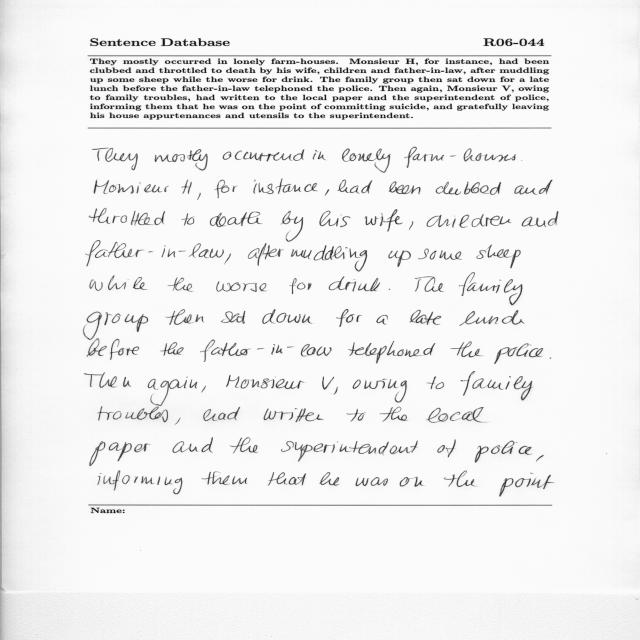 Sentence Database R06-044
They mostly occurred in lonely farm-houses. Monsieur H, for instance, had been
clubbed and throttled to death by his wife, children and father-in-law, after muddling
up some sheep while the worse for drink. The family group then sat down for a late
lunch before the father-in-law telephoned the police. Then again, Monsieur V, owing
to family troubles, had written to the local paper and the superintendent of police,
informing them that he was on the point of committing suicide, and gratefully leaving
his house appurtenances and utensils to the superintendent.
They mostly occurrend in lonely farm-houses.
Monsieur H, for instance, had been clubbed and
throttled to death by his wife, children and
father-in-law, after muddling up some sheep
while the worse for drink. The family
group then sat down for a late lunch
before the father-in-law telephoned the police.
Then again, Monsieur V, owing to family
troubles, had written to the local
paper and the superintendent of police,
informing them that he was on the point
Name: